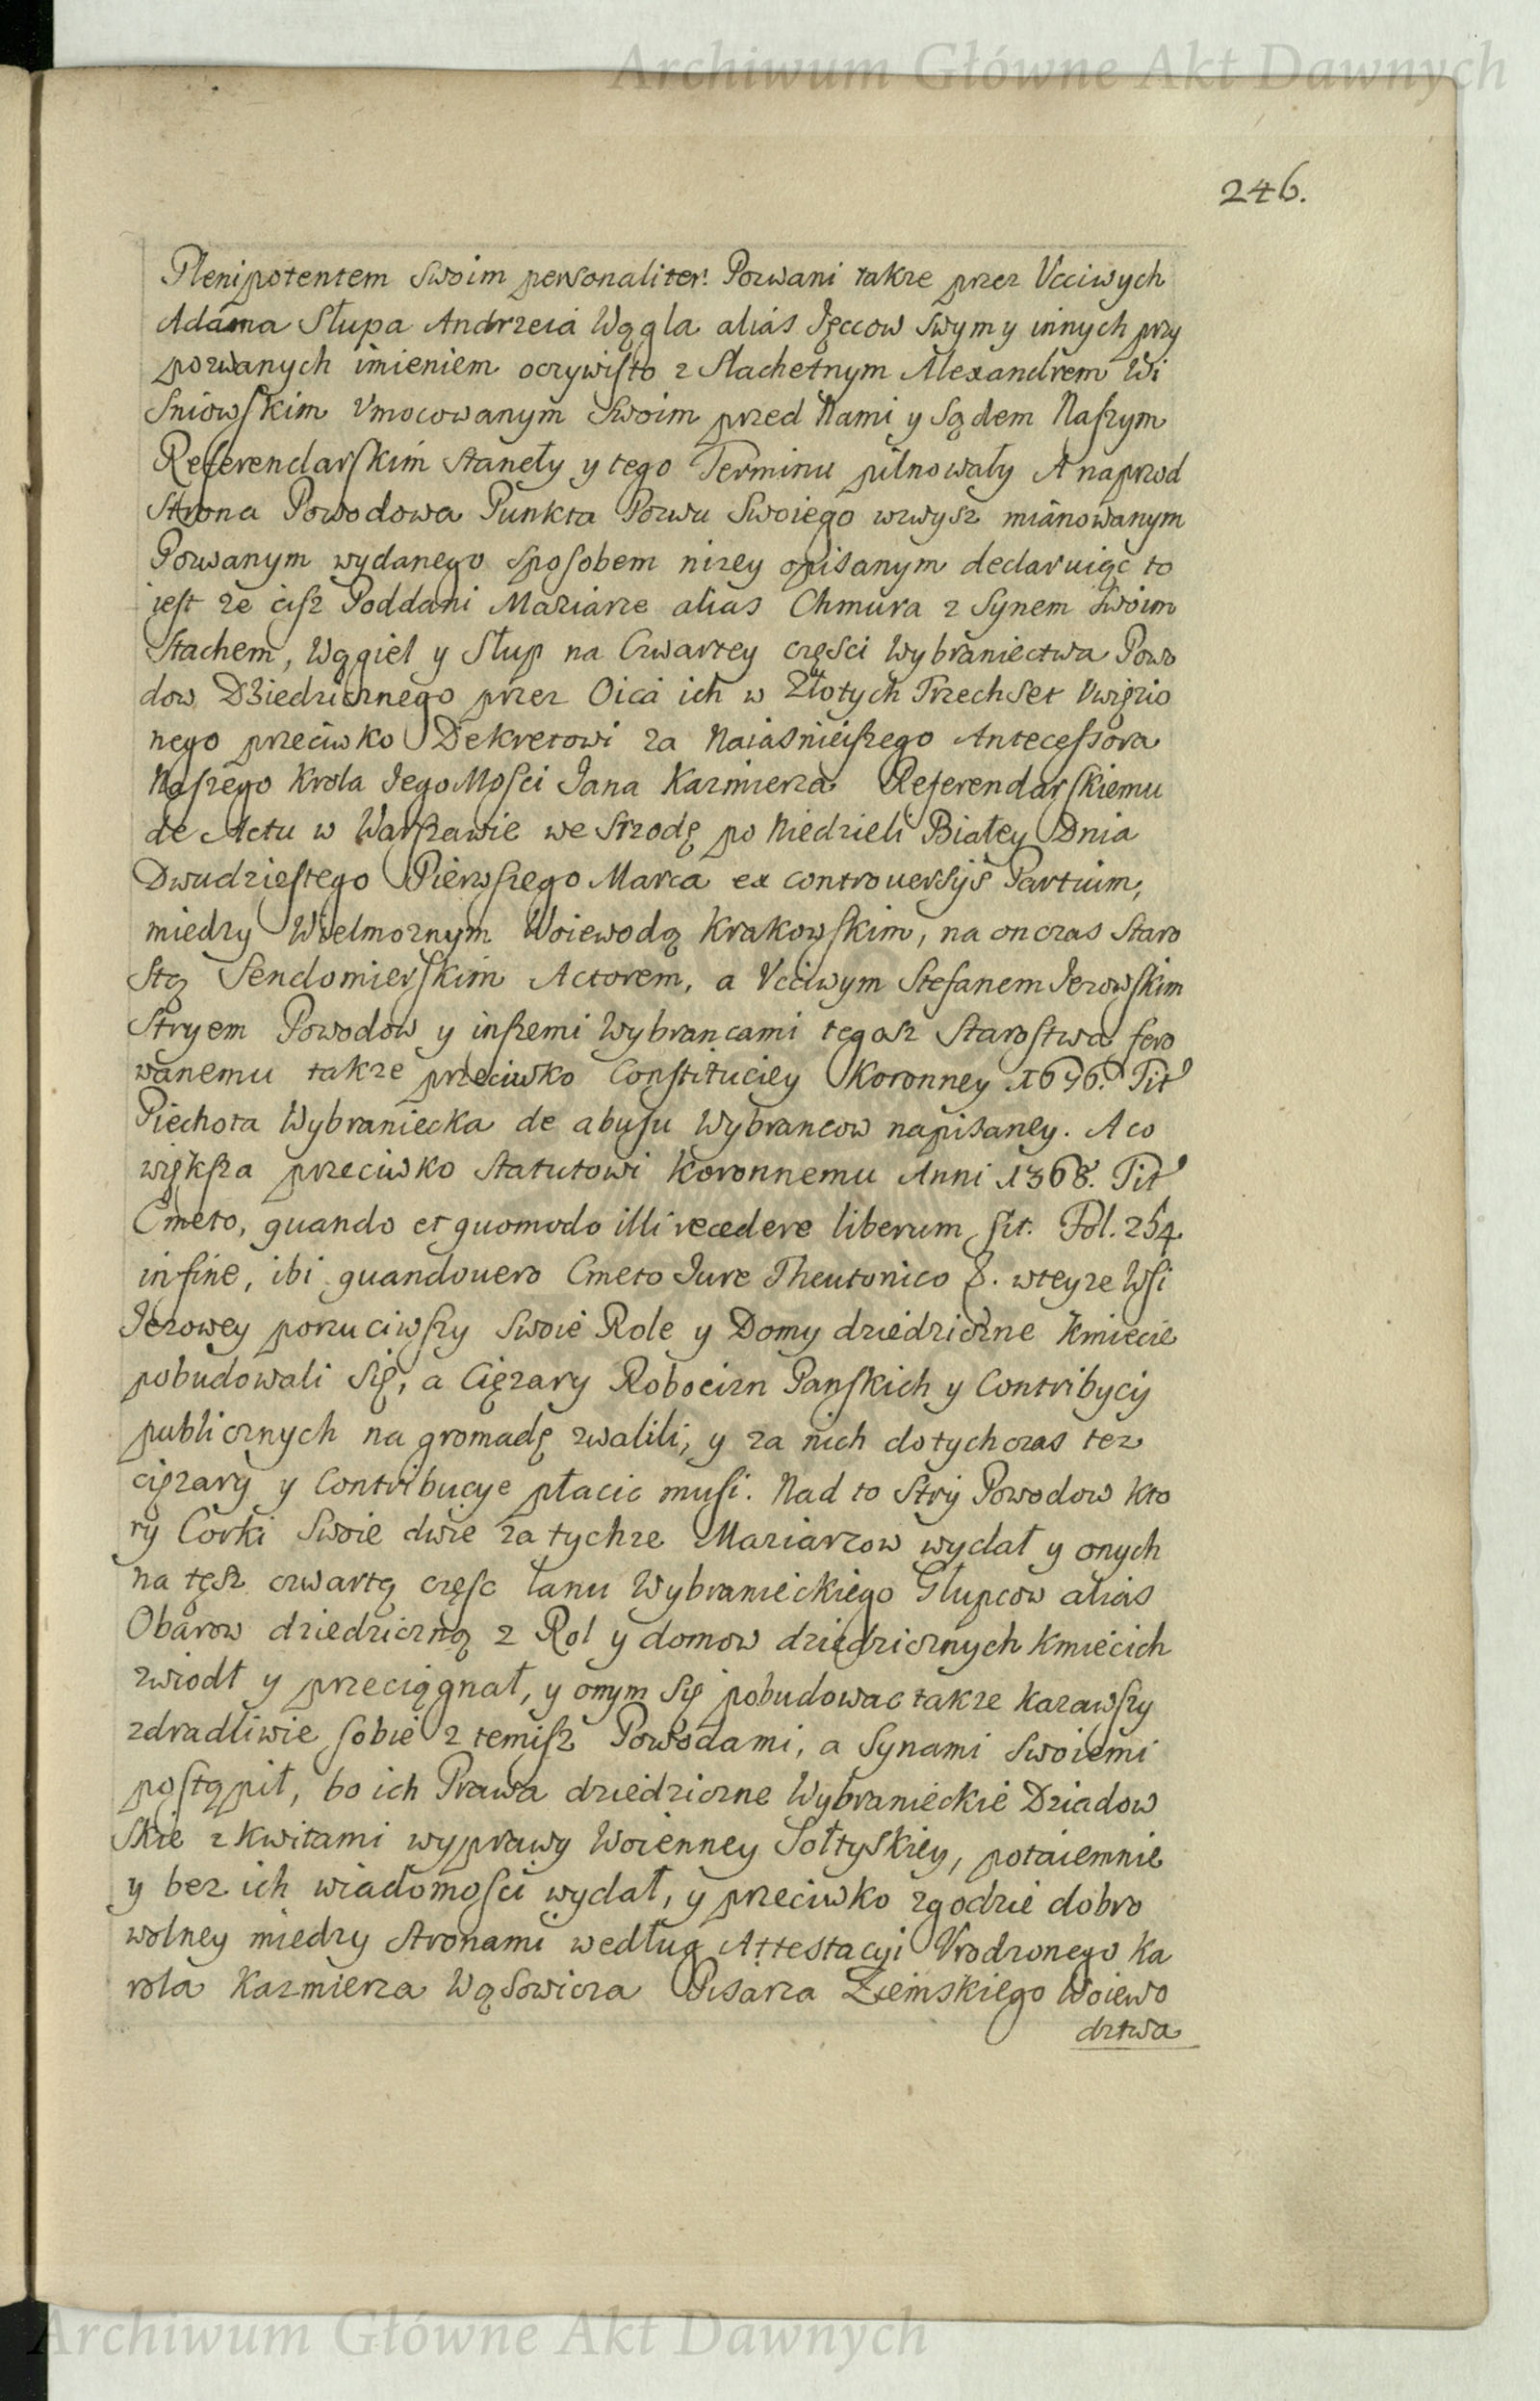 Archiwum Główne Akt Dawnych
246.
Plenipotentem Swoim personaliter. Pozwani takze przez Vcciwych
Adama Słupa Andrzeia Wągla alias Jęccow Swym y innych przy
pozwanych imieniem oczywisto z Slachetnym Alexandrem Wi
sniowskim Vmocowanym Swoim przed Nami y Sądem Naszym
Referendarskim stanęły y tego Terminu pilnowały A naprzod
Strona Powodowa Punkta Pozwu Swoiego wzwysz mianowanym
Pozwanym wydanego sposobem nizey opisanym declaruiąc to
jest ze cisz Poddani Maziarze alias Chmura z Synem Swoim
Stachem, Wągiel y Słup na Czwartey częsci Wybraniectwa Powo
dow Dziedzicznego przez Oica ich w Złotych Trzechset Vwięzio
nego przeciwko Dekretowi za Naiasnieiszego Antecessora
Naszego Krola Jego Mosci Jana Kazmierza Referendarskiemu
de Actu w Warszawie we Srzodę po Niedzieli Białey Dnia
Dwudziestego Pierwszego Marca ex controuersijs Partium,
miedzy Wielmoznym Woiewodą Krakowskim, na on czas Staro
stą Sendomierskim Actorem, a Vcciwym Stefanem Jezowskim
Stryem Powodow y inszemi Wybrancami tegosz Starostwa fero
wanemu takze przeciwko Constituciey Koronney 1696. Tit
Piechota Wybraniecka de abusu Wybrancow napisaney. A co
większa przeciwko Statutowi Koronnemu Anni 1368. Tit
Cmeto, quando et quomodo illi recedere liberum sit. Fol. 254.
in fine, ibi quandouero Cmeto Jure Theutonico &. wteyze Wsi
Jezowey porzuciwszy Swoie Role y Domy dziedziczne Kmiecie
pobudowali Się, a Cięzary Robocizn Panskich y Contribycij
publicznych na gromadę zwalili, y za nich dotychczas tez
cięzary y Contribucye płacic musi. Nad to Stry Powodow kto
ry Corki Swoie dwie za tychze Maziarzow wydał y onych
na tęsz czwartą częsc łanu Wybranieckiego Głupcow alias
Obarow dziedziczną z Rol y domow dziedzicznych Kmiecich
zwiodł y przeciągnał, y onym Się pobudowac takze kazawszy
zdradliwie sobie z temisz Powodami, a Synami Swoiemi
postąpił, bo ich Prawa dziedziczne Wybranieckie Dziadow
skie z kwitami wyprawy Woienney Sołtyskiey, potaiemnie
y bez ich wiadomosci wydał, y przeciwko zgodzie dobro
wolney miedzy Stronami według Attestacyi Vrodzonego Ka
rola Kazmierza Wąsowicza Pisarza Ziemskiego Woiewo
dztwa
Archiwum Główne Akt Dawnych